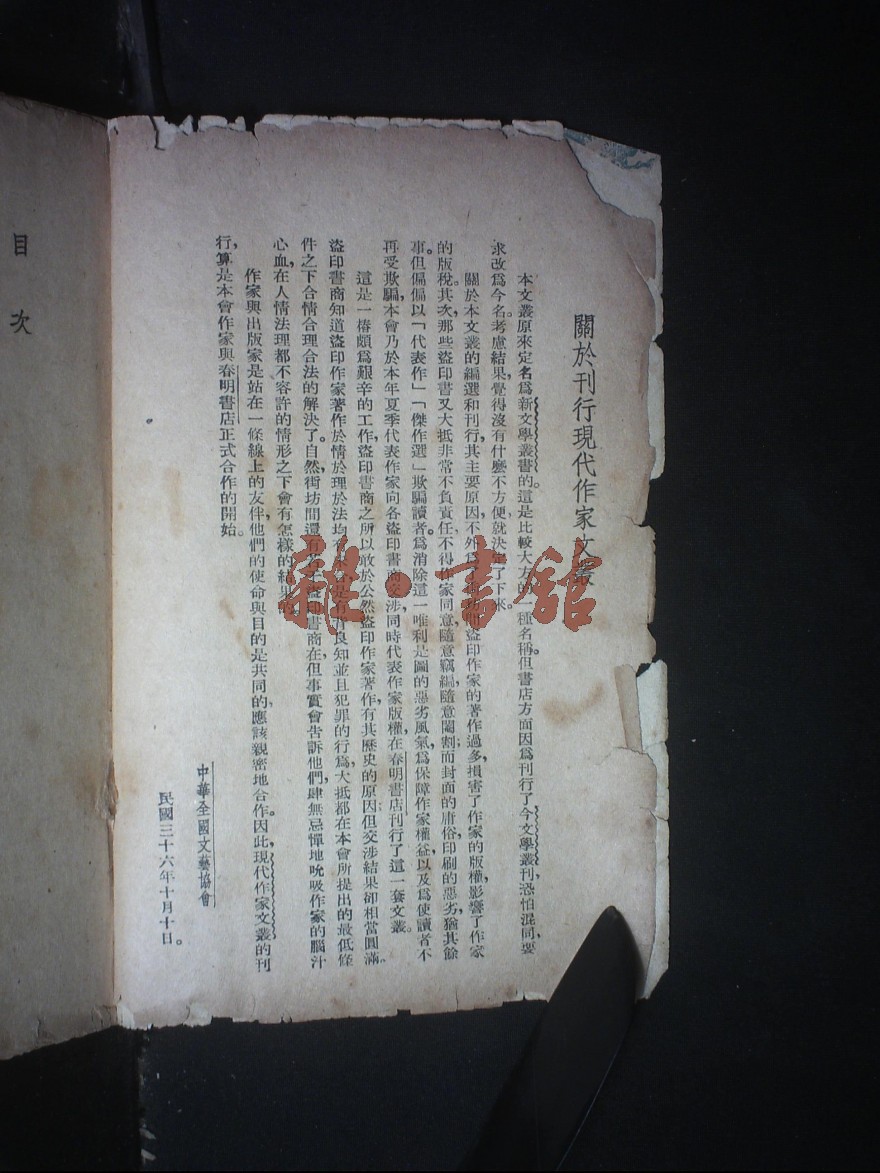 關於刊行現代作家文叢
本文叢原來定名爲新文學叢書的。這是比較大方的一種名稱。但書店方面因爲刊行了今文學叢刊,恐怕混同,要
求改爲今名。考慮結果,覺得沒有什麼不方便,就決定了下來。
關於本文叢的編選和刊行,其主要原因,不外爲了街坊間盜印作家的著作過多,損害了作家的版權,影響了作家
的版稅。其次,那些盜印書又大抵非常不負責任,不得作家同意,隨意竊編,隨意閹割;而封面的庸俗,印刷的惡劣,猶其餘
事。但偏偏以「代表作」「傑作選」欺騙讀者。爲消除這一唯利是圖的惡劣風氣,爲保障作家權益,以及爲使讀者不
再受欺騙,本會乃於本年夏季代表作家向各盜印書商交涉,同時代表作家版權,在春明書店刊行了這一套文叢。
這是一樁頗爲艱辛的工作,盜印書商之所以敢於公然盜印作家著作,有其歷史的原因;但交涉結果却相當圓滿。
盜印書商知道盜印作家著作於情於理於法均有 是有背良知並且犯罪的行爲,大抵都在本會所提出的最低條
件之下合情合理合法的解決了。自然,街坊間還有若干盜印書商在,但事實會告訴他們,肆無忌憚地吮吸作家的腦汁
心血,在人情法理都不容許的情形之下會有怎樣的結果的。
作家與出版家是站在一條線上的友伴,他們的使命與目的是共同的,應該親密地合作。因此,現代作家文叢的刊
行,算是本會作家與春明書店正式合作的開始。
中華全國文藝協會
民國三十六年十月十日。
目次
雜·書舘